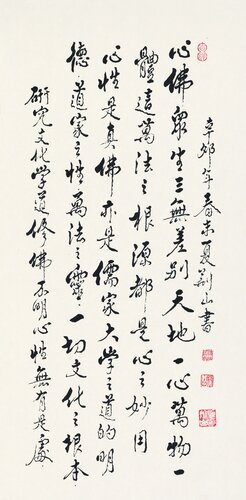 心佛眾生三無差別天地一心萬物一
體這萬法之根源都是心之妙用
心性是真佛亦是儒家大學之道的明
德道家之性萬法之靈一切文化之根本
研究文化学道修佛不明心性無有是處
辛卯年春末夏荆山書